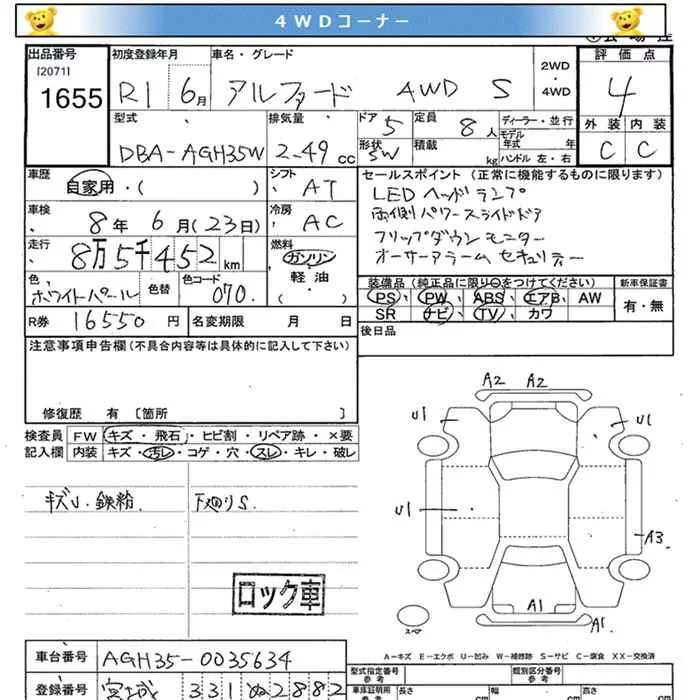 4WDコーナー
出品番号 初度登録年月 車名・グレード 2WD・4WD 評価点
[2071]
1655 R1 6月 アルファード 4WD S 4
型式 排気量 ドア 定員 ディーラー・並行 外装 内装
DBA-AGH35W 2.49cc 5 8人 モデル年式 年 C C
形状 SW 積載 kg ハンドル 左・右
車歴 自家用・( ) シフト AT
セールスポイント(正常に機能するものに限ります)
LEDヘッドランプ
車検 8年 6月(23日) 冷房 AC
両側パワースライドドア
フリップダウンモニター
走行 8万5千452km 燃料 ガソリン 軽油 ・( )
オーサーアラームセキュリティー
色 ホワイトパール 色替 色コード 070.
装備品(純正品に限り○をつけてください) 新車保証書
PS PW ABS エアB AW 有・無
SR ナビ TV カワ
R券 16550円 名変期限 月 日
後日品
注意事項申告欄(不具合内容等は具体的に記入して下さい)
修復歴 有 [箇所 ]
検査員 FW キズ・飛石・ヒビ割・リペア跡・×要
記入欄 内装 キズ・汚レ・コゲ・穴・スレ・キレ・破レ
キズU.鉄粉 下廻りS.
A2 A2
U1 U1
U1
A3
A1
A1
スペア
ロック車
A-キズ E-エクボ U-凹み W-補修跡 S-サビ C-腐食 XX-交換済
車台番号 AGH35-0035634
型式指定番号 類別区分番号
登録番号 宮城 331 ぬ2882
車庫証明用参考 長さ cm 幅 cm 高さ cm